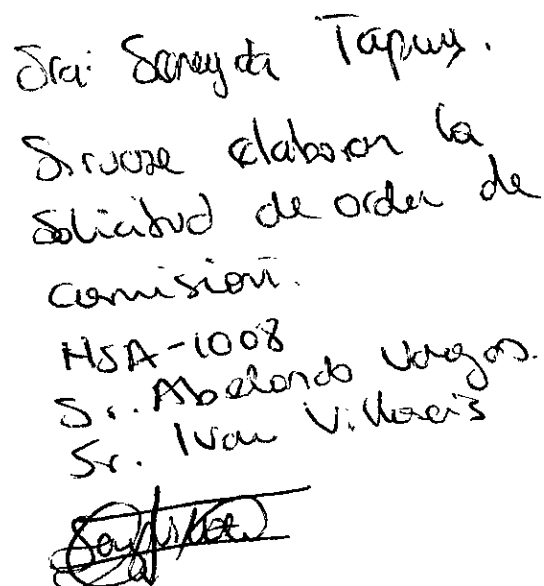 Sra: Sareyda Tapuy.
Sírvase elaborar la
solicitud de orden de
comisión.
HSA-1008
Sr. Abelardo Vargas.
Sr. Ivan Villacis